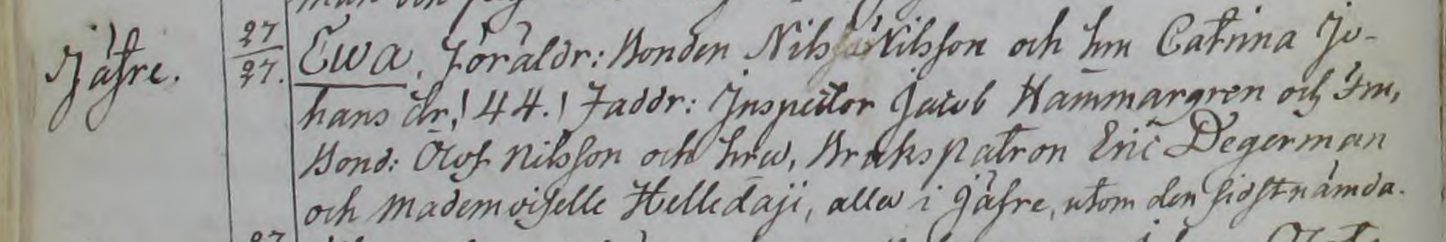 Jäfre.
27
27.
Ewa. Föräldr: Bonden Nils Nilsson och hm Catrina Jo-
hans dr, 44. Faddr: Inspector Jacob Hammargren och Fru,
Bond: Olof Nilsson och hru, Brukspatron Eric Degerman
och Mademoiselle Helledaji, alla i Jäfre, utom den sidstnämda.